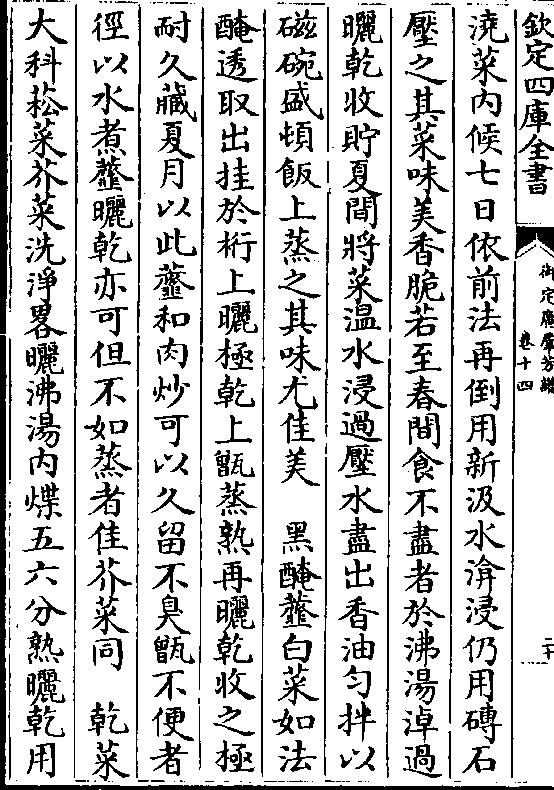 欽定四庫全書
御定廣羣芳譜
卷十四
二十
澆菜内候七日依前法再倒用新汲水渰浸仍用磚石
壓之其菜味美香脆若至春間食不盡者於沸湯淖過
曬乾收貯夏間將菜温水浸過壓水盡出香油匀拌以
磁碗盛頓飯上蒸之其味尤佳美　黑醃虀白菜如法
醃透取出挂於桁上曬極乾上甑蒸熟再曬乾收之極
耐久藏夏月以此虀和肉炒可以久留不臭甑不便者
徑以水煮虀曬乾亦可但不如蒸者佳芥菜同　乾菜
大科菘菜芥菜洗淨畧曬沸湯内煠五六分熟曬乾用